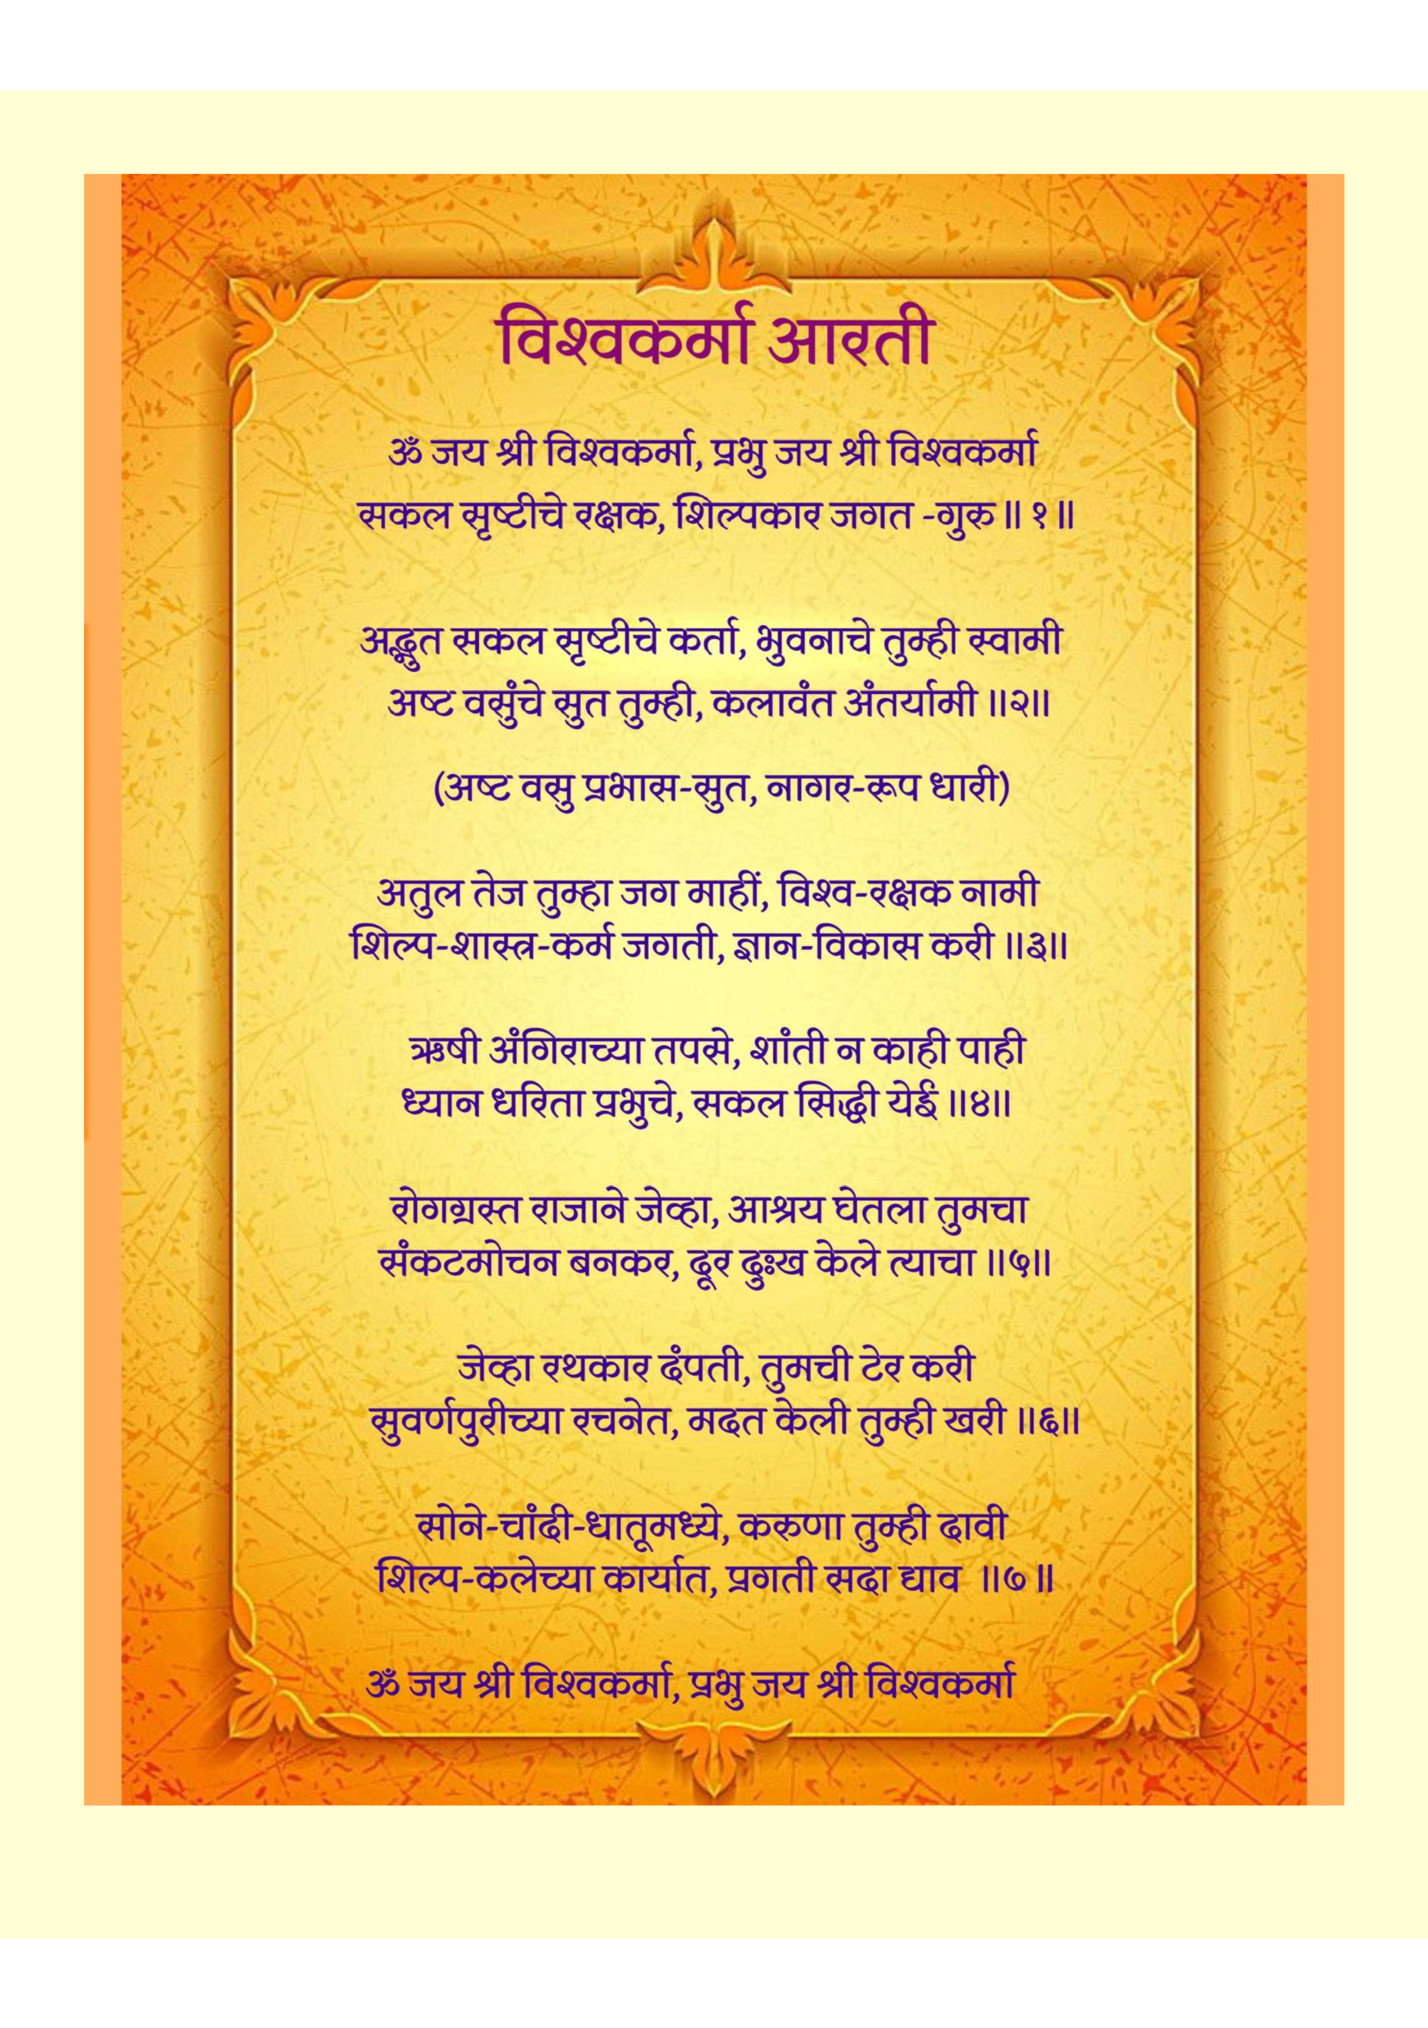 विश्वकर्मा आरती
ॐ जय श्री विश्वकर्मा, प्रभु जय श्री विश्वकर्मा
सकल सृष्टीचे रक्षक, शिल्पकार जगत -गुरु ॥ १ ॥
अद्भुत सकल सृष्टीचे कर्ता, भुवनाचे तुम्ही स्वामी
अष्ट वसुंचे सुत तुम्ही, कलावंत अंतर्यामी ॥२॥
(अष्ट वसु प्रभास-सुत, नागर-रूप धारी)
अतुल तेज तुम्हा जग माहीं, विश्व-रक्षक नामी
शिल्प-शास्त्र-कर्म जगती, ज्ञान-विकास करी ॥३॥
ऋषी अंगिराच्या तपसे, शांती न काही पाही
ध्यान धरिता प्रभुचे, सकल सिद्धी येई ॥४॥
रोगग्रस्त राजाने जेव्हा, आश्रय घेतला तुमचा
संकटमोचन बनकर, दूर दुःख केले त्याचा ॥५॥
जेव्हा रथकार दंपती, तुमची टेर करी
सुवर्णपुरीच्या रचनेत, मदत केली तुम्ही खरी ॥६॥
सोने-चांदी-धातूमध्ये, करुणा तुम्ही दावी
शिल्प-कलेच्या कार्यात, प्रगती सदा द्याव ॥७ ॥
ॐ जय श्री विश्वकर्मा, प्रभु जय श्री विश्वकर्मा